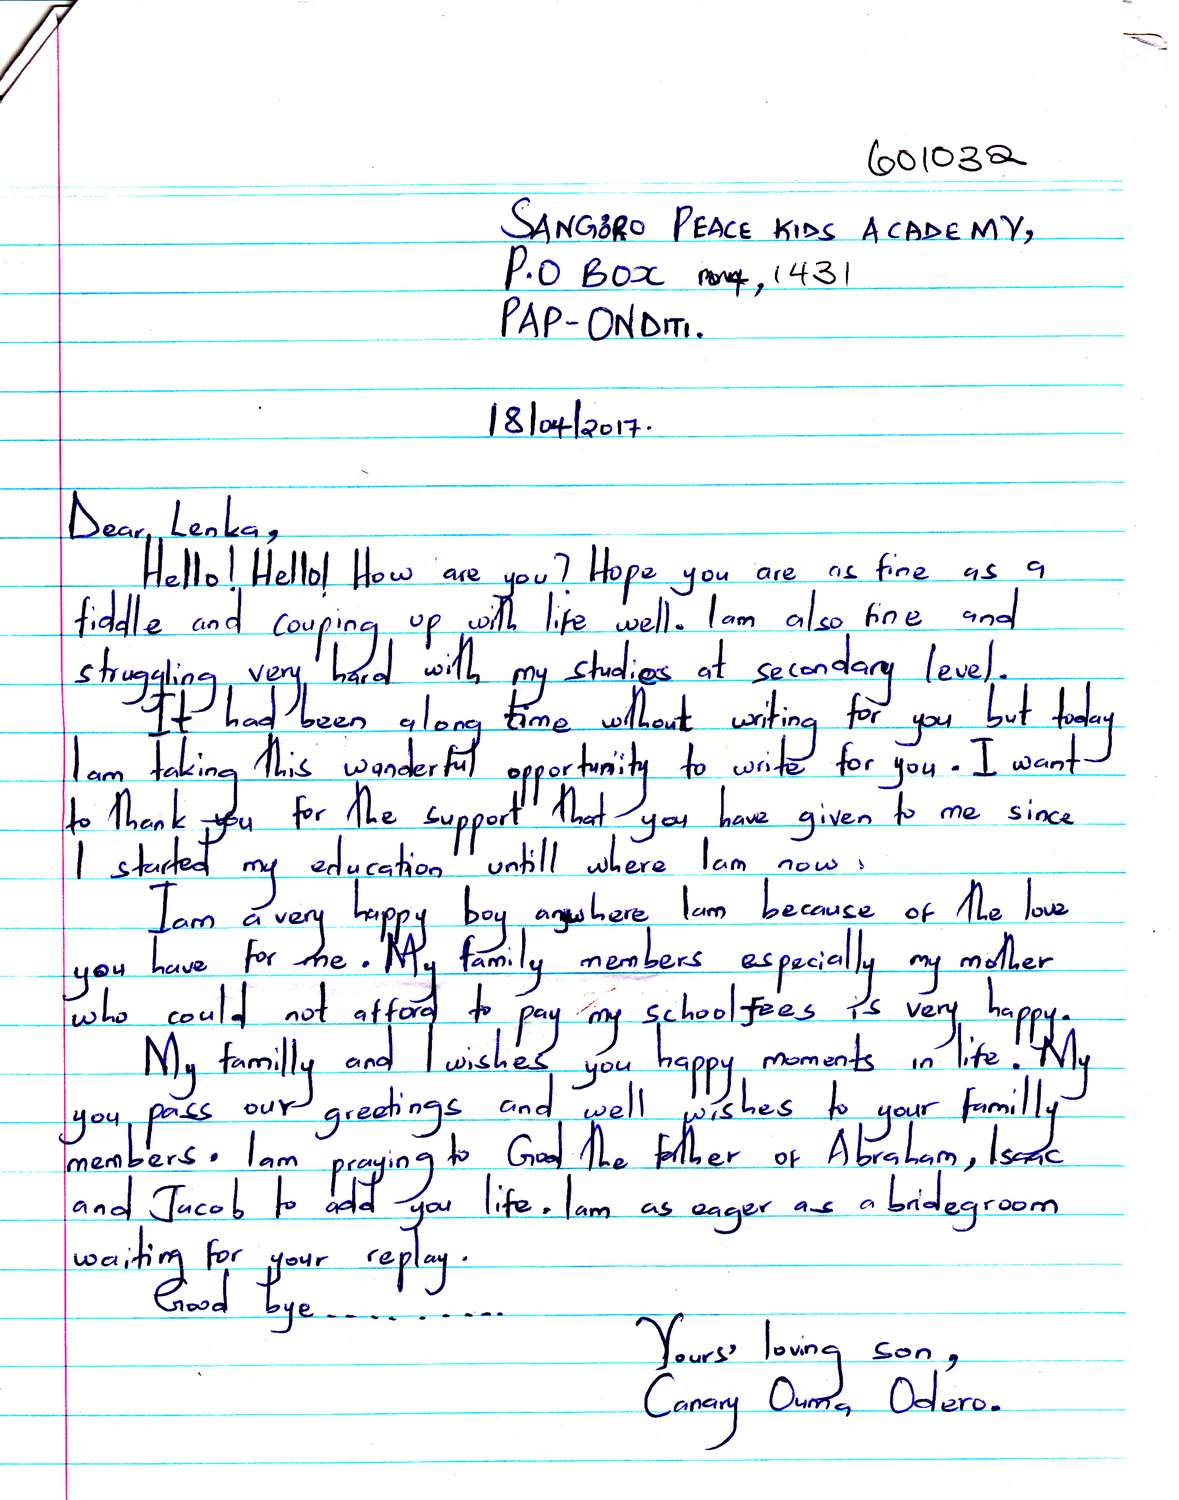 601032
SANGORO PEACE KIDS ACADEMY,
P.O BOX , 1431
PAP-ONDITI.
18/04/2017.
Dear, Lenka,
Hello! Hello! How are you? Hope you are as fine as a
fiddle and couping up with life well. Iam also fine and
struggling very hard with my studies at secondary level.
It had been along time without writing for you but today
Iam taking this wonderful opportunity to write for you. I want
to thank you for the support that you have given to me since
I started my education untill where Iam now.
Iam a very happy boy anywhere Iam because of the love
you have for me. My family members especially my mother
who could not afford to pay my school fees is very happy.
My familly and I wishes you happy moments in life. My
you pass our greetings and well wishes to your familly
members. Iam praying to God the father of Abraham, Isaac
and Jacob to add you life. Iam as eager as a bridegroom
waiting for your replay.
Good bye..........
Yours' loving son,
Canary Ouma Odero.